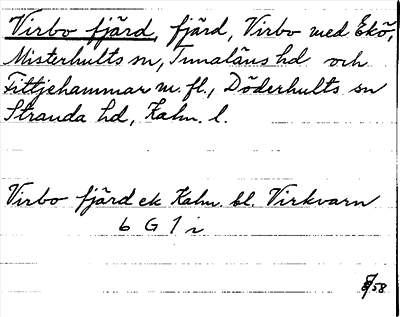 Virbo fjärd, fjärd, Virbo med Ekö,
Misterhults sn, Tunaläns hd och
Fittjehammar m. fl., Döderhults sn
Stranda hd, Kalm. l.
Virbo fjärd ek Kalm. bl. Virkvarn
6 G 1 i
58